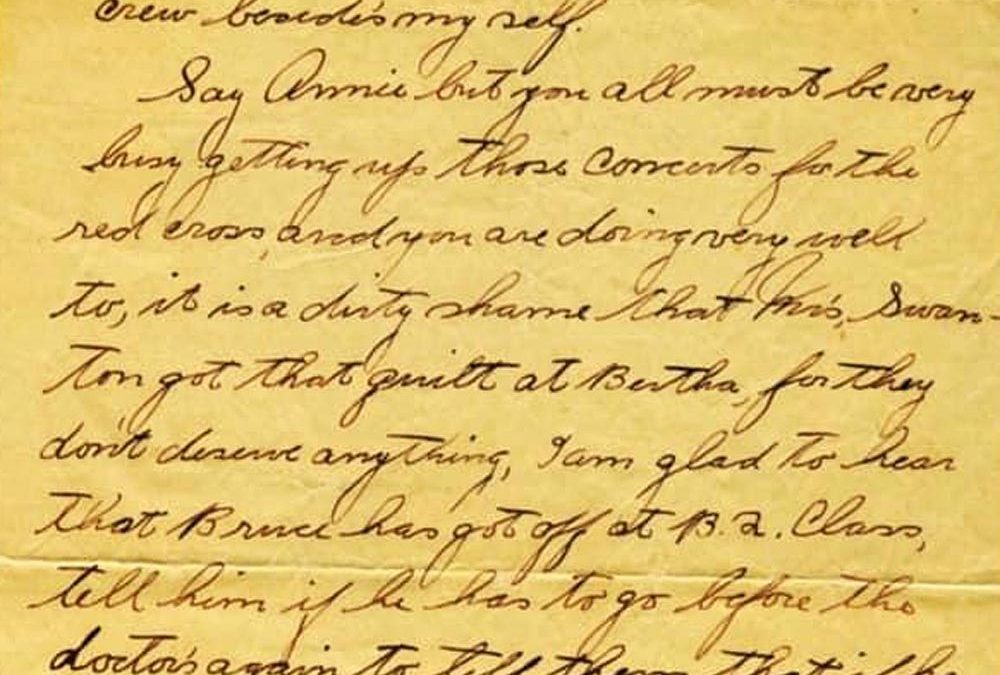 crew besedis my self.
Say Annie but you all must be very
busy getting up those Concerts for the
red cross, and you are doing very well
to, it is a dirty shame that Mrs, Swan-
ton got that quilt at Bertha, for they
don't deserve anything, I am glad to hear
that Bruce has got off at B.2. Class,
tell him if he has to go before the
doctor's again to tell them that if he